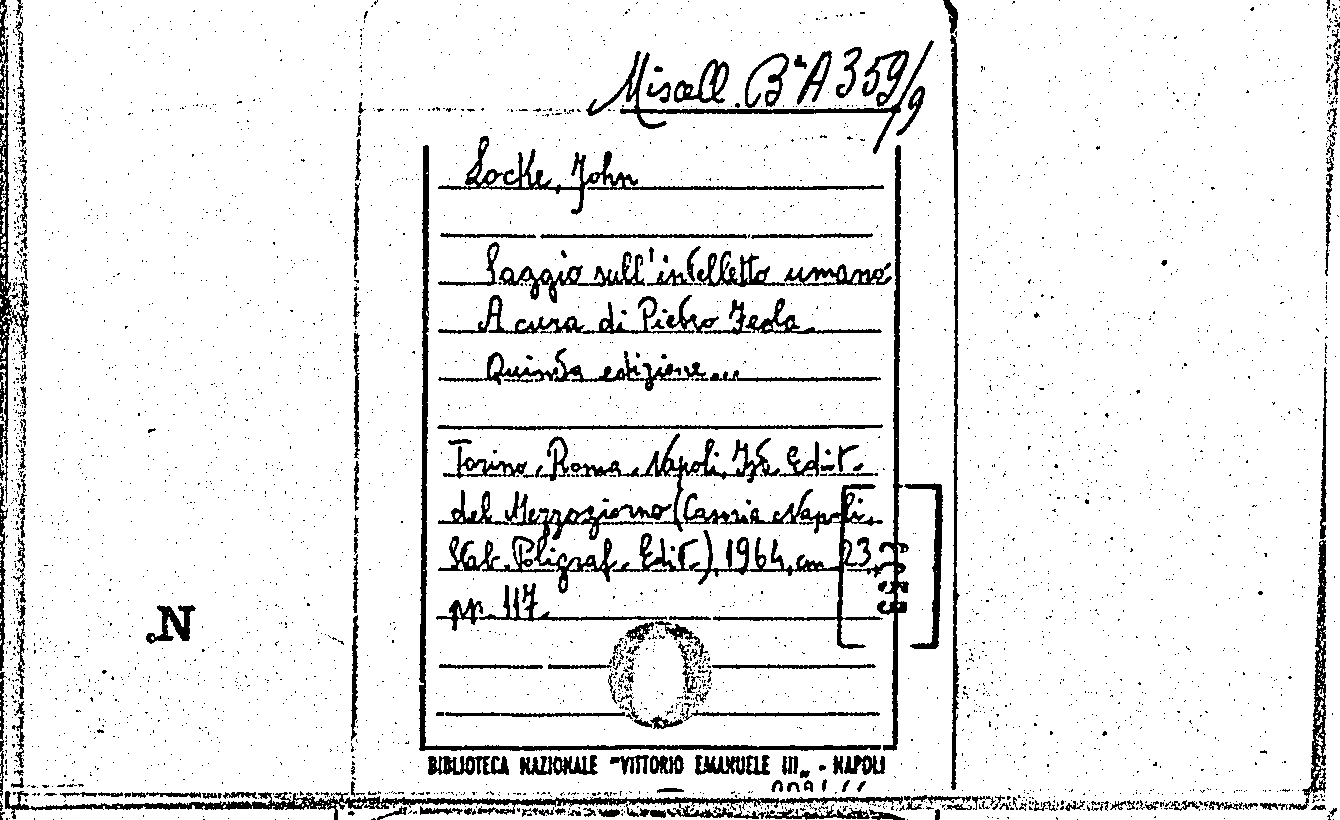 Miscell. Bª A 359/9
Locke, John
Saggio sull'intelletto umano.
A cura di Pietro Feola.
Quinta edizione...
Torino, Roma, Napoli, Ist. Edit.
del Mezzogiorno (Casoria Napoli,
Stab. Poligraf. Edit.), 1964, cm. 23,
pp. 117.
N.
BIBLIOTECA NAZIONALE "VITTORIO EMANUELE III„ - NAPOLI